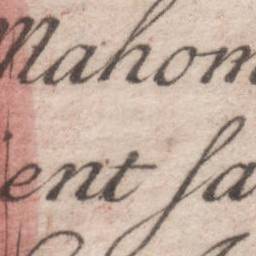 Mahom
ient sa